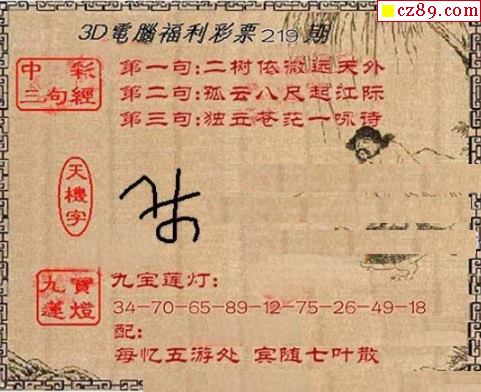 cz89.com
3D電腦福利彩票219期
中彩
三句經
第一句:二树依微远天外
第二句:孤云八尺起江际
第三句:独立苍茫一咏诗
天機字
九寶
蓮燈
九宝莲灯:
34-70-65-89-12-75-26-49-18
配:
每忆五游处 宾随七叶散